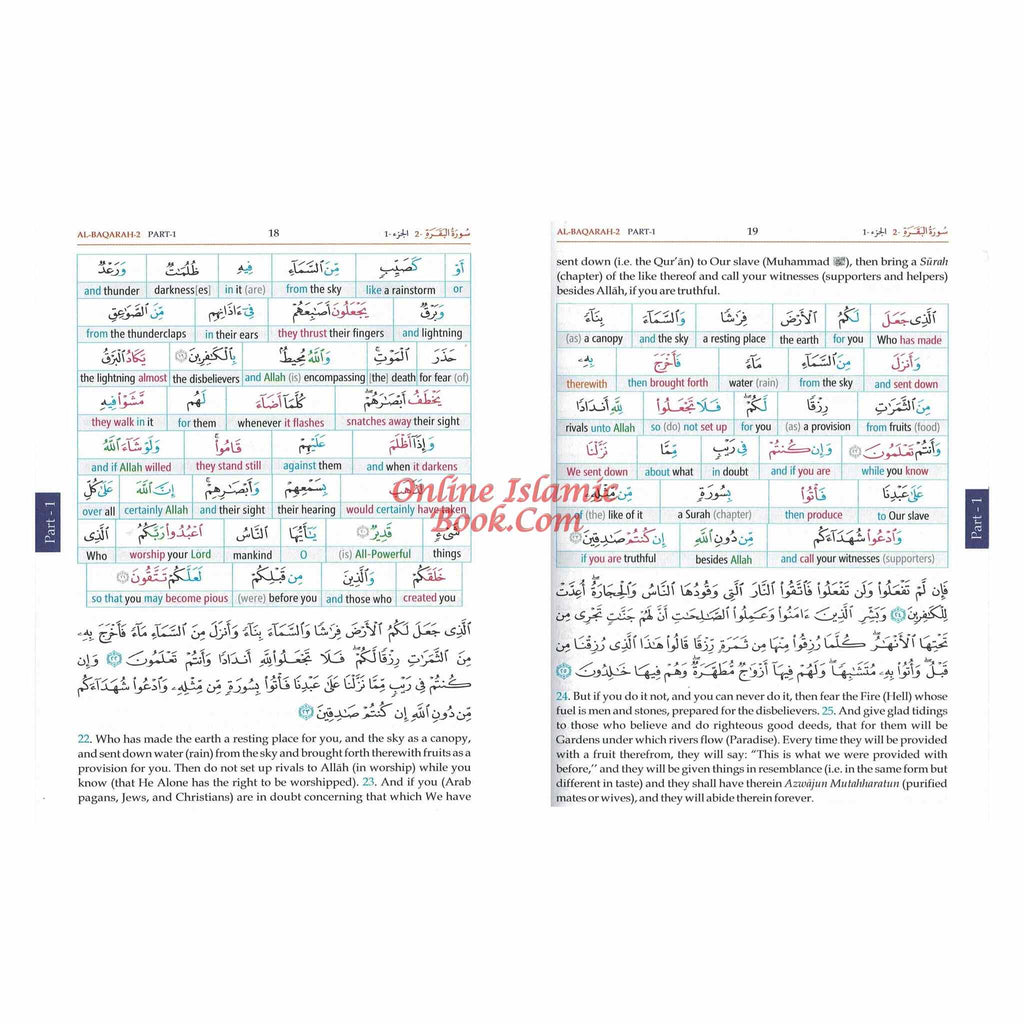 AL-BAQARAH-2 PART-1 18 الجزء -1 سُورَةُ البَقَرَةِ -2
أَوْ كَصَيِّبٍ مِّنَ ٱلسَّمَآءِ فِيهِ ظُلُمَٰتٌ وَرَعْدٌ
and thunder darkness[es] in it (are) from the sky like a rainstorm or
وَبَرْقٌ يَجْعَلُونَ أَصَٰبِعَهُمْ فِىٓ ءَاذَانِهِم مِّنَ ٱلصَّوَٰعِقِ
from the thunderclaps in their ears they thrust their fingers and lightning
حَذَرَ ٱلْمَوْتِ ۚ وَٱللَّهُ مُحِيطٌۢ بِٱلْكَٰفِرِينَ ١٩ يَكَادُ ٱلْبَرْقُ
the lightning almost the disbelievers and Allah (is) encompassing [the] death for fear (of)
يَخْطَفُ أَبْصَٰرَهُمْ ۖ كُلَّمَآ أَضَآءَ لَهُم مَّشَوْا۟ فِيهِ
they walk in it for them whenever it flashes snatches away their sight
وَإِذَآ أَظْلَمَ عَلَيْهِمْ قَامُوا۟ ۚ وَلَوْ شَآءَ ٱللَّهُ
and if Allah willed they stand still against them and when it darkens
لَذَهَبَ بِسَمْعِهِمْ وَأَبْصَٰرِهِمْ ۚ إِنَّ ٱللَّهَ عَلَىٰ كُلِّ
over all certainly Allah and their sight their hearing would certainly have taken
شَىْءٍ قَدِيرٌ ٢٠ يَٰٓأَيُّهَا ٱلنَّاسُ ٱعْبُدُوا۟ رَبَّكُمُ ٱلَّذِى
Who worship your Lord mankind O (is) All-Powerful things
خَلَقَكُمْ وَٱلَّذِينَ مِن قَبْلِكُمْ لَعَلَّكُمْ تَتَّقُونَ ٢١
so that you may become pious (were) before you and those who created you
ٱلَّذِى جَعَلَ لَكُمُ ٱلْأَرْضَ فِرَٰشًا وَٱلسَّمَآءَ بِنَآءً وَأَنزَلَ مِنَ ٱلسَّمَآءِ مَآءً فَأَخْرَجَ بِهِۦ
مِنَ ٱلثَّمَرَٰتِ رِزْقًا لَّكُمْ ۖ فَلَا تَجْعَلُوا۟ لِلَّهِ أَندَادًا وَأَنتُمْ تَعْلَمُونَ ٢٢ وَإِن
كُنتُمْ فِى رَيْبٍ مِّمَّا نَزَّلْنَا عَلَىٰ عَبْدِنَا فَأْتُوا۟ بِسُورَةٍ مِّن مِّثْلِهِۦ وَٱدْعُوا۟ شُهَدَآءَكُم
مِّن دُونِ ٱللَّهِ إِن كُنتُمْ صَٰدِقِينَ ٢٣
22. Who has made the earth a resting place for you, and the sky as a canopy,
and sent down water (rain) from the sky and brought forth therewith fruits as a
provision for you. Then do not set up rivals to Allâh (in worship) while you
know (that He Alone has the right to be worshipped). 23. And if you (Arab
pagans, Jews, and Christians) are in doubt concerning that which We have
Part - 1
AL-BAQARAH-2 PART-1 19 الجزء -1 سُورَةُ البَقَرَةِ -2
sent down (i.e. the Qur'ân) to Our slave (Muhammad ﷺ), then bring a Sûrah
(chapter) of the like thereof and call your witnesses (supporters and helpers)
besides Allâh, if you are truthful.
ٱلَّذِى جَعَلَ لَكُمُ ٱلْأَرْضَ فِرَٰشًا وَٱلسَّمَآءَ بِنَآءً
(as) a canopy and the sky a resting place the earth for you Who has made
وَأَنزَلَ مِنَ ٱلسَّمَآءِ مَآءً فَأَخْرَجَ بِهِۦ
therewith then brought forth water (rain) from the sky and sent down
مِنَ ٱلثَّمَرَٰتِ رِزْقًا لَّكُمْ ۖ فَلَا تَجْعَلُوا۟ لِلَّهِ أَندَادًا
rivals unto Allah so (do) not set up for you (as) a provision from fruits (food)
وَأَنتُمْ تَعْلَمُونَ ٢٢ وَإِن كُنتُمْ فِى رَيْبٍ مِّمَّا نَزَّلْنَا
We sent down about what in doubt and if you are while you know
عَلَىٰ عَبْدِنَا فَأْتُوا۟ بِسُورَةٍ مِّن مِّثْلِهِۦ
of (the) like of it a Surah (chapter) then produce to Our slave
وَٱدْعُوا۟ شُهَدَآءَكُم مِّن دُونِ ٱللَّهِ إِن كُنتُمْ صَٰدِقِينَ ٢٣
if you are truthful besides Allah and call your witnesses (supporters)
فَإِن لَّمْ تَفْعَلُوا۟ وَلَن تَفْعَلُوا۟ فَٱتَّقُوا۟ ٱلنَّارَ ٱلَّتِى وَقُودُهَا ٱلنَّاسُ وَٱلْحِجَارَةُ ۖ أُعِدَّتْ
لِلْكَٰفِرِينَ ٢٤ وَبَشِّرِ ٱلَّذِينَ ءَامَنُوا۟ وَعَمِلُوا۟ ٱلصَّٰلِحَٰتِ أَنَّ لَهُمْ جَنَّٰتٍ تَجْرِى مِن
تَحْتِهَا ٱلْأَنْهَٰرُ ۖ كُلَّمَا رُزِقُوا۟ مِنْهَا مِن ثَمَرَةٍ رِّزْقًا قَالُوا۟ هَٰذَا ٱلَّذِى رُزِقْنَا مِن
قَبْلُ ۖ وَأُتُوا۟ بِهِۦ مُتَشَٰبِهًا ۖ وَلَهُمْ فِيهَآ أَزْوَٰجٌ مُّطَهَّرَةٌ ۖ وَهُمْ فِيهَا خَٰلِدُونَ ٢٥
24. But if you do it not, and you can never do it, then fear the Fire (Hell) whose
fuel is men and stones, prepared for the disbelievers. 25. And give glad tidings
to those who believe and do righteous good deeds, that for them will be
Gardens under which rivers flow (Paradise). Every time they will be provided
with a fruit therefrom, they will say: "This is what we were provided with
before," and they will be given things in resemblance (i.e. in the same form but
different in taste) and they shall have therein Azwâjun Mutahharatun (purified
mates or wives), and they will abide therein forever.
Part - 1
Online Islamic
Book.Com